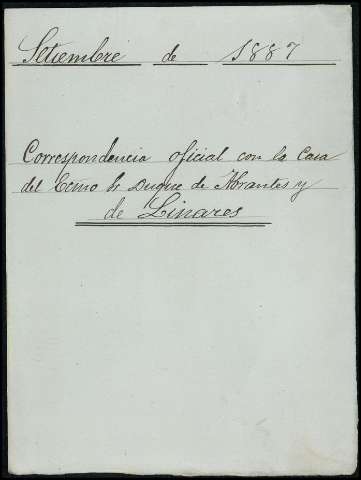 Setiembre de 1887
Correspondencia oficial con la Casa
del Ecmo Sr Duque de Abrantes y
de Linares